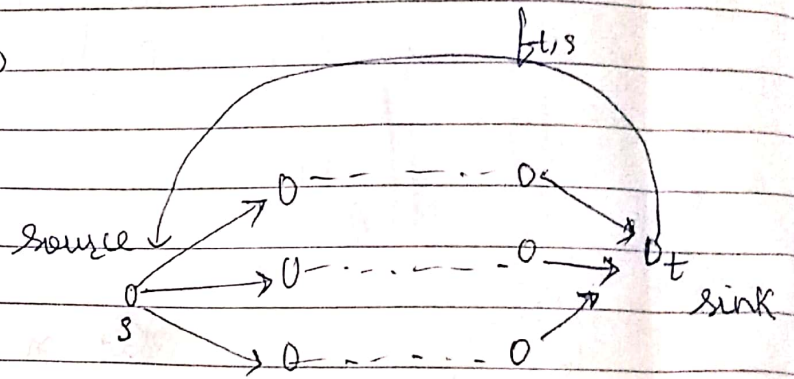 f t,s
source
t
sink
s